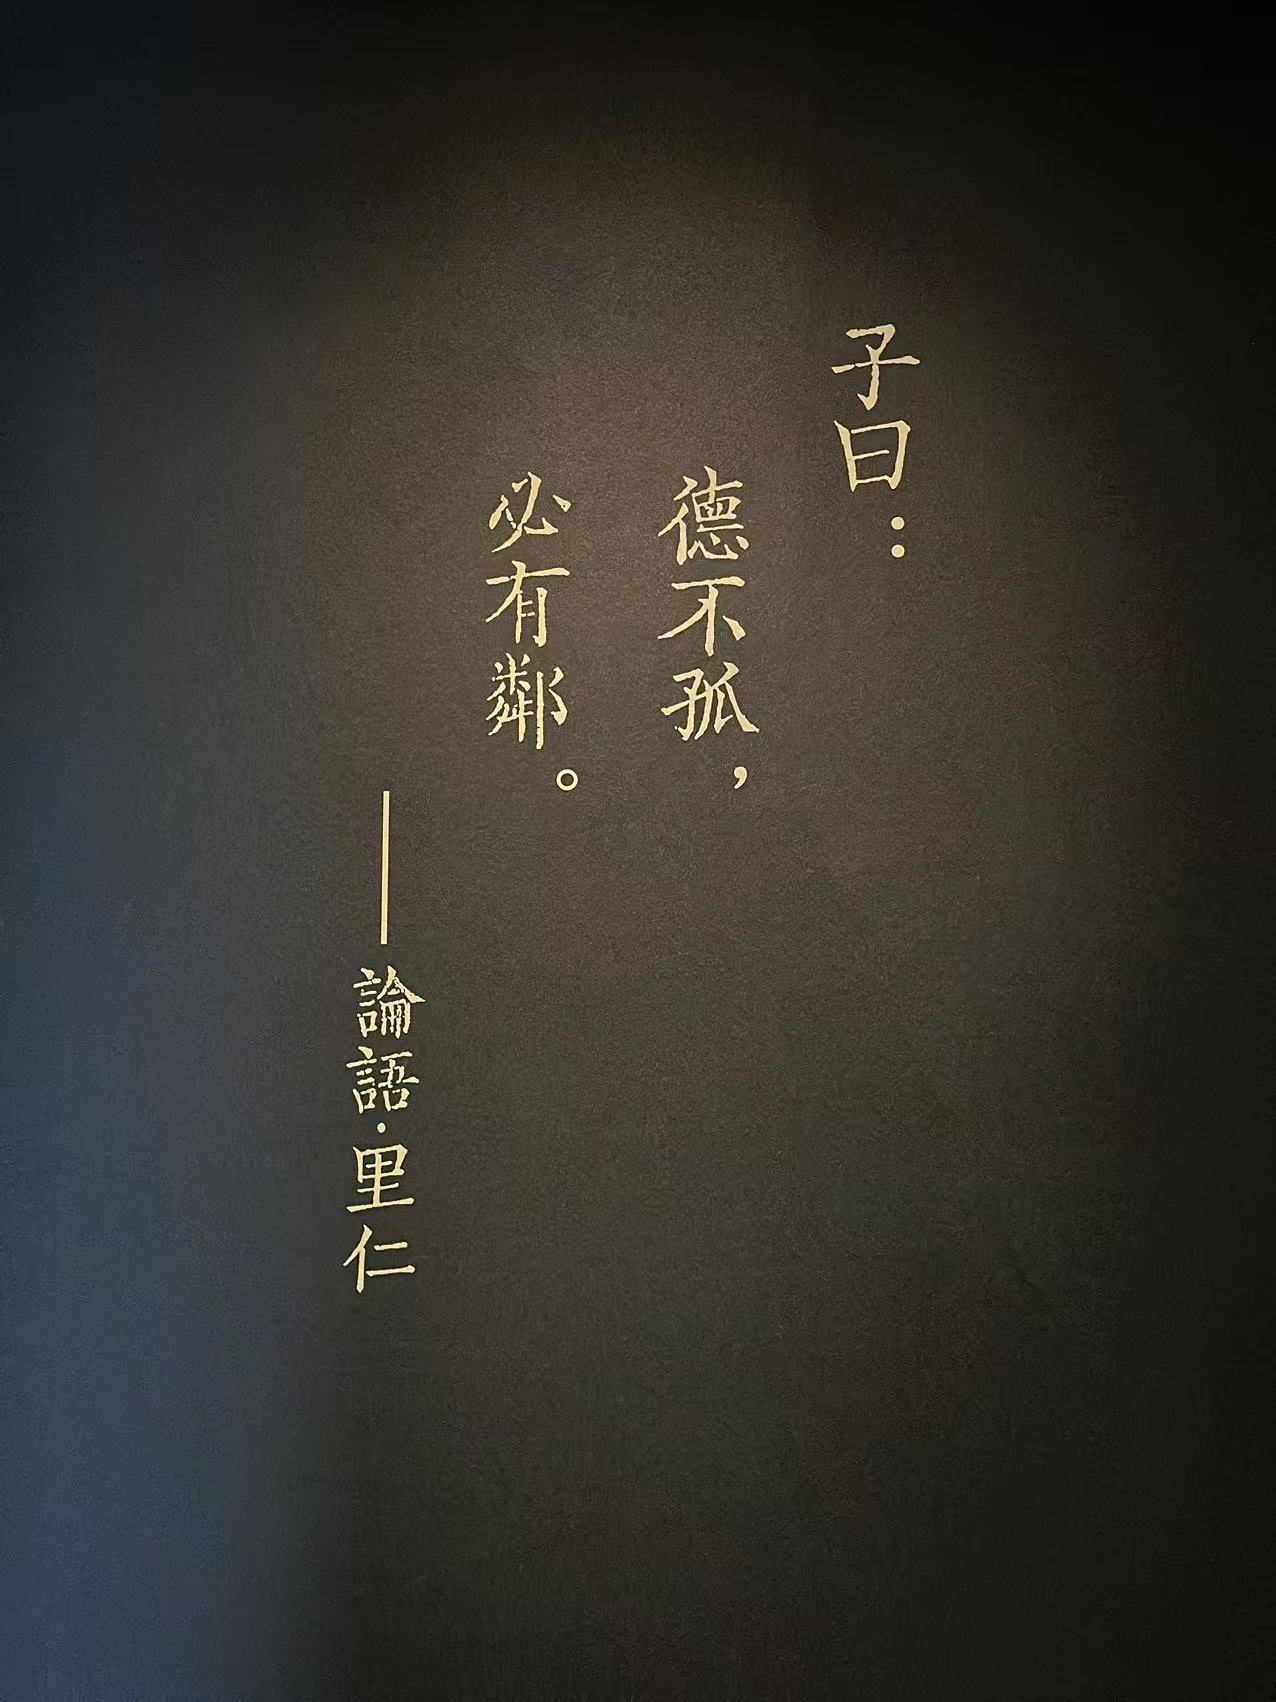 子曰：
德不孤，
必有鄰。
——論語·里仁